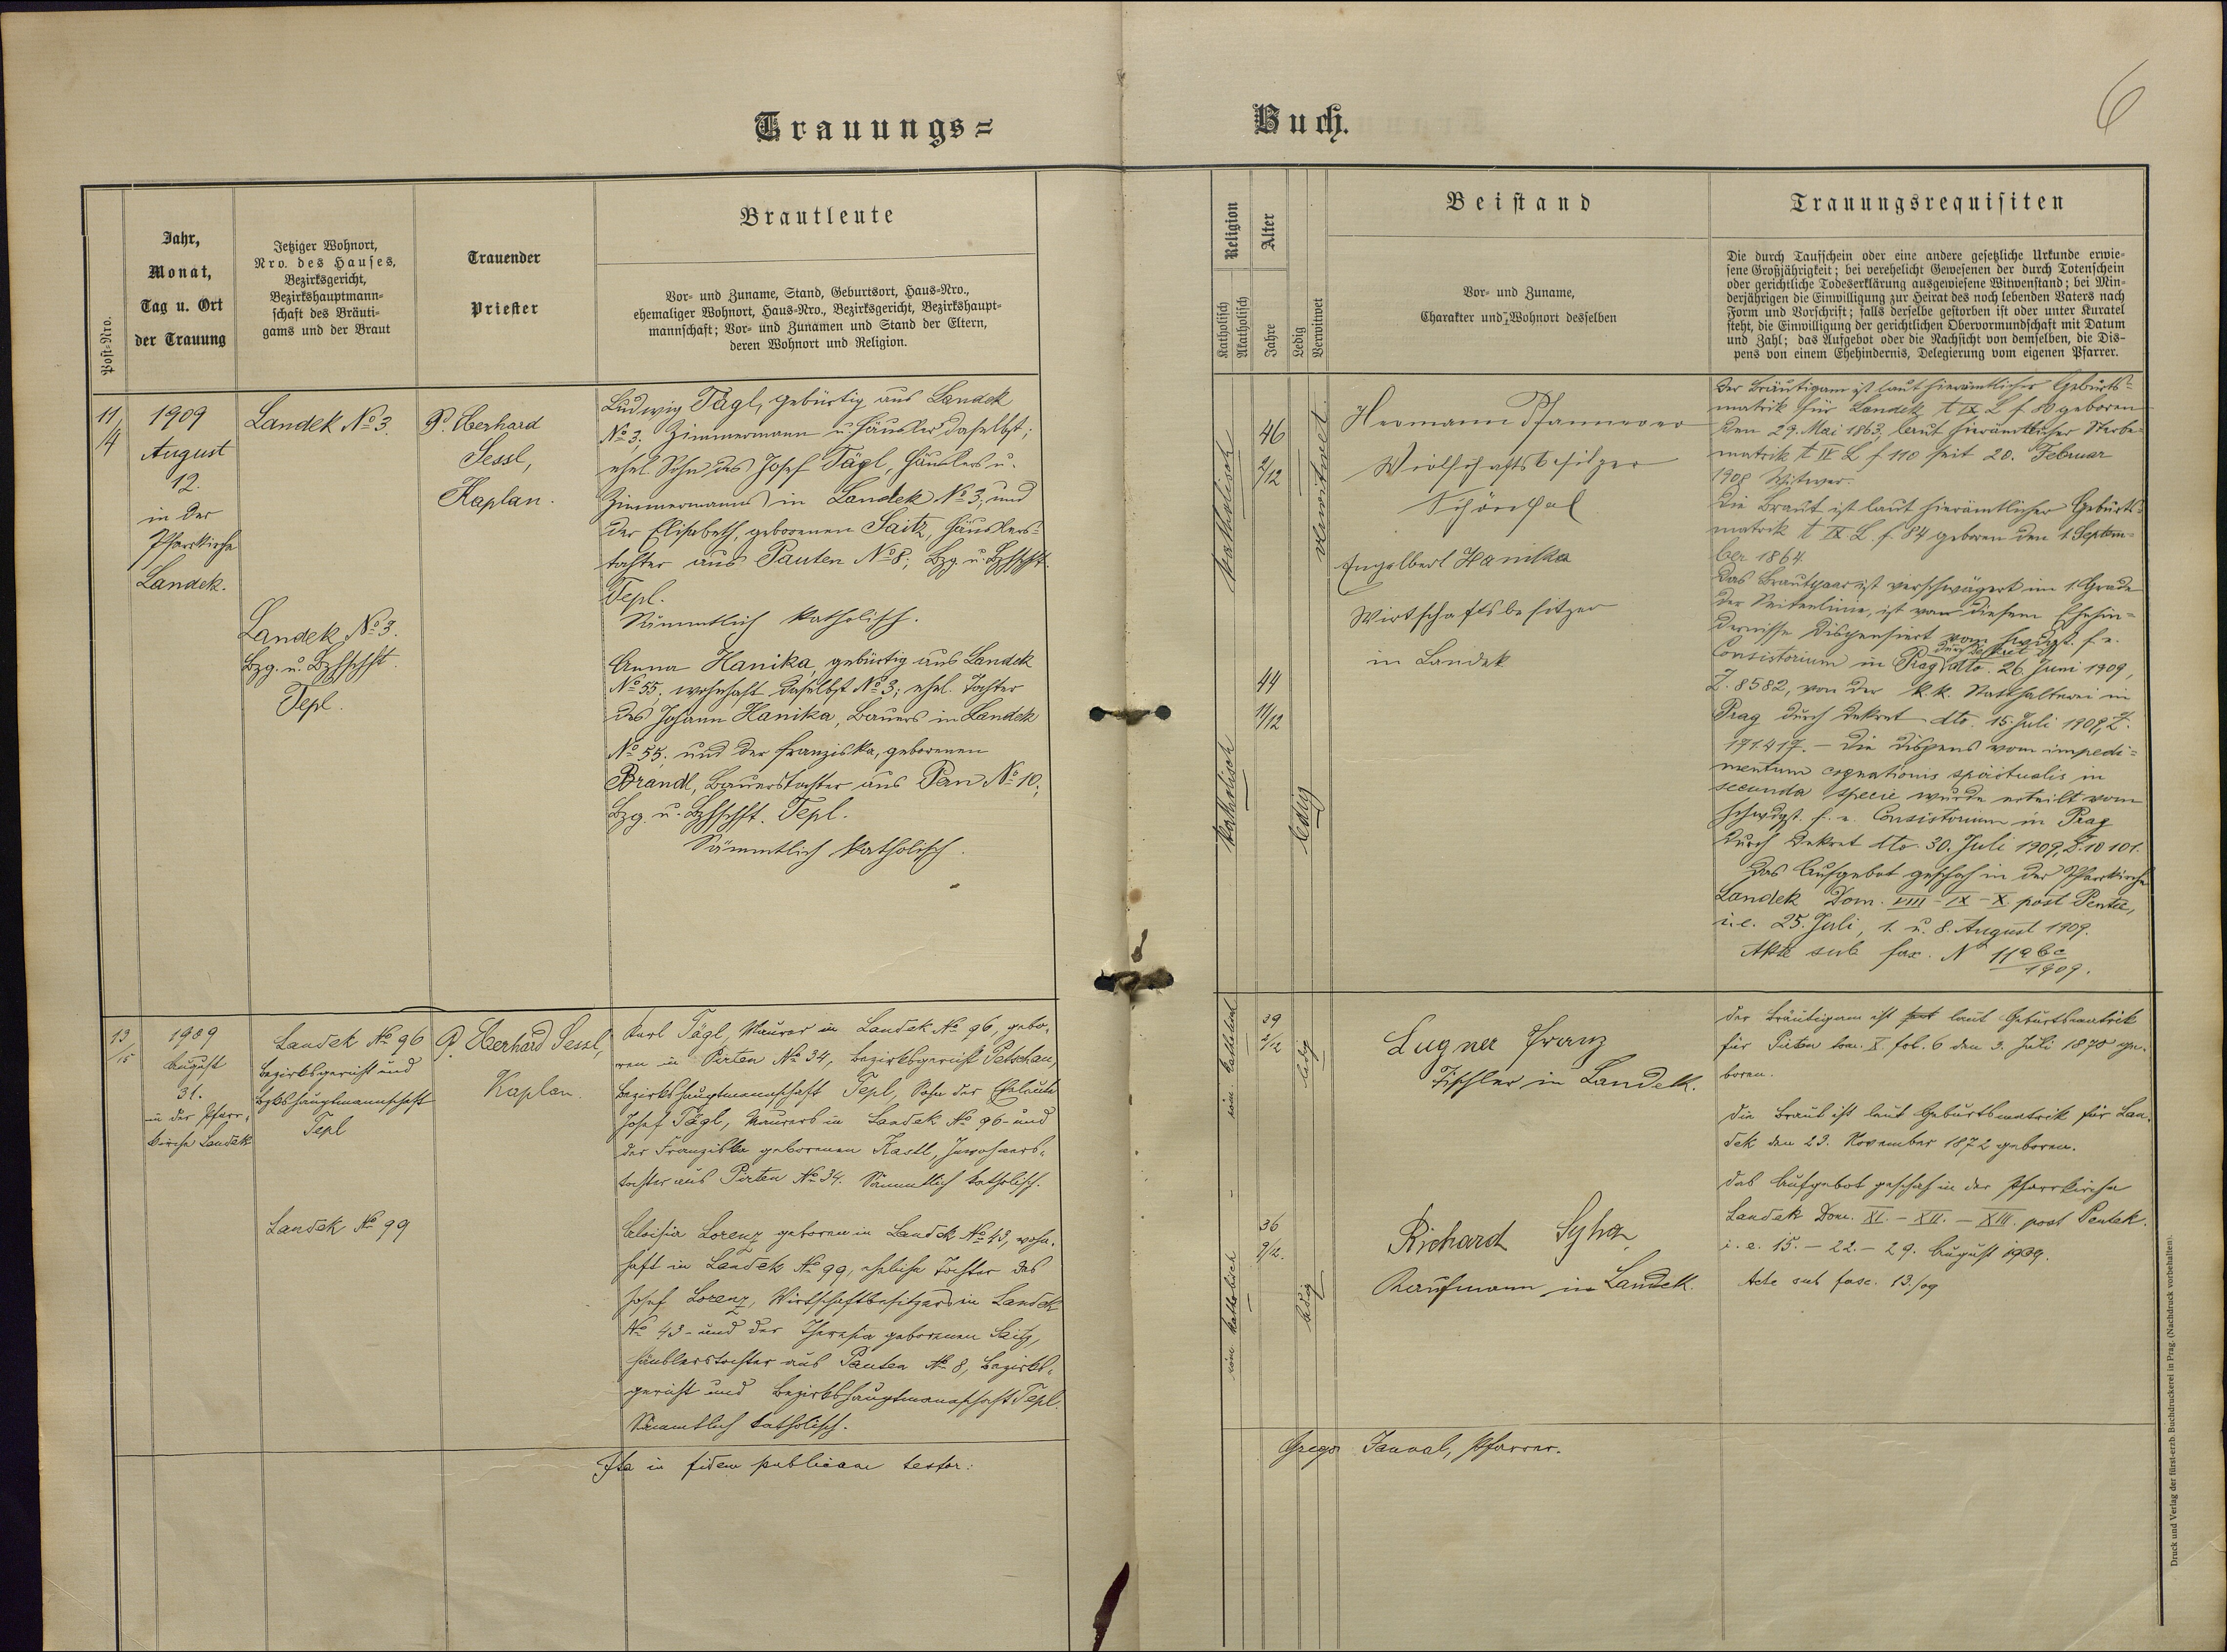 6
Trauungs=
Buch.
Post=Nro.
Jahr,
Monat,
Tag u. Ort
der Trauung
Jetziger Wohnort,
Nro. des Hauses,
Bezirksgericht,
Bezirkshauptmann=
schaft des Bräuti=
gams und der Braut
Trauender
Priester
Brautleute
Vor= und Zuname, Stand, Geburtsort, Haus=Nro.,
ehemaliger Wohnort, Haus=Nro., Bezirksgericht, Bezirkshaupt=
mannschaft; Vor= und Zunamen und Stand der Eltern,
deren Wohnort und Religion.
Religion
Katholisch
Akatholisch
Alter
Jahre
Ledig
Verwitwet
Beistand
Vor= und Zuname,
Charakter und Wohnort desselben
Trauungsrequisiten
Die durch Taufschein oder eine andere gesetzliche Urkunde erwie=
sene Großjährigkeit; bei verehelicht Gewesenen der durch Totenschein
oder gerichtliche Todeserklärung ausgewiesene Witwenstand; bei Min=
derjährigen die Einwilligung zur Heirat des noch lebenden Vaters nach
Form und Vorschrift; falls derselbe gestorben ist oder unter Kuratel
steht, die Einwilligung der gerichtlichen Obervormundschaft mit Datum
und Zahl; das Aufgebot oder die Nachsicht von demselben, die Dis=
pens von einem Ehehindernis, Delegierung vom eigenen Pfarrer.
11/4
1909
August
12.
in der
Pfarrkirche
Landek.
Landek No 3.
Landek No 3.
Bzg. u. Bzhschft.
Tepl.
P. Eberhard
Sessl,
Kaplan.
Ludwig Tägl, gebürtig aus Landek
No 3, Zimmermann u. Häusler daselbst;
ehel. Sohn des Josef Tägl, Häuslers u.
Zimmermanns in Landek No 3; und
der Elisabeth, geborenen Saitz, Häuslers=
tochter aus Pauten No 8, Bzg. u. Bzhschft.
Tepl.
Sämmtlich katholisch.
Anna Hanika, gebürtig aus Landek
No 55, wohnhaft daselbst No 3; ehel. Tochter
des Johann Hanika, Bauers in Landek
No 55; und der Franziska, geborenen
Brandl, Bauerstochter aus Pern No 10;
Bzg. u. Bzhschft. Tepl.
Sämmtlich katholisch.
katholisch
46
2/12
verwitwet
katholisch
44
11/12
ledig
Hermann Pfannerer
Wirtschaftsbesitzer
Schönthal
Engelbert Hanika
Wirtschaftsbesitzer
in Landek
Der Bräutigam ist laut hierämtlicher Geburts=
matrik für Landek t IX L f. 80 geboren
den 29. Mai 1863, laut hierämtlicher Sterbe=
matrik t IV L f 110 seit 20. Februar
1908 Witwer.
Die Braut ist laut hierämtlicher Geburts=
matrik t IX L. f. 84 geboren den 1. Septem=
ber 1864.
Das Brautpaar ist verschwägert im 1 Grade
der Seitenlinie, ist von diesem Ehehin=
dernisse dispensiert vom hwdgst. f. e.
Consistorium in Prag durch Dekret dto. 26. Juni 1909,
Z. 8582, von der k. k. Statthalterei in
Prag durch Dekret dto. 15. Juli 1909, Z.
171.417. – Die Dispens vom impedi=
mentum cognationis spiritualis in
secunda specie wurde erteilt vom
hochwdgst. f. e. Consistorium in Prag
durch Dekret dto. 30. Juli 1909, Z. 10101.
Das Aufgebot geschah in der Pfarrkirche
Landek Dom. VIII – IX – X. post Pentec,
i. e. 25. Juli, 1. u. 8. August 1909.
Akte sub fasc. No 11abc/1909.
13/15
1909
August
31.
in der Pfarr=
kirche Landek
Landek No 96
Bezirksgericht und
Bzkshauptmannschaft
Tepl
Landek No 99
P. Eberhard Sessl,
Kaplan.
Karl Tägl, Maurer in Landek No 96, gebo=
ren in Pirten No 34, Bezirksgericht Petschau,
Bezirkshauptmannschaft Tepl, Sohn der Eheleute
Josef Tägl, Maurers in Landek No 96 und
der Franziska geborenen Kastl, Inwohners=
tochter aus Pirten No 34. Sämmtlich katholisch.
Aloisia Lorenz geboren in Landek No 43, wohn=
haft in Landek No 99, eheliche Tochter des
Josef Lorenz, Wirtschaftsbesitzers in Landek
No 43 und der Theresia geborenen Saitz,
Häuslerstochter aus Pauten No 8, Bezirks=
gericht und Bezirkshauptmannschaft Tepl.
Sämmtlich katholisch.
röm. katholisch
39
2/12
ledig
röm. katholisch
36
9/12.
ledig
Lugner Franz
Tischler in Landek.
Richard Syha
Kaufmann in Landek.
Der Bräutigam ist laut Geburtsmatrik
für Pirten tom. X. fol. 6 den 3. Juli 1870 ge=
boren.
Die Braut ist laut Geburtsmatrik für Lan=
dek den 23. November 1872 geboren.
Das Aufgebot geschah in der Pfarrkirche
Landek Dom. XI. – XII. – XIII. post Pentek.
i. e. 15. – 22. – 29. August 1909.
Acte sub fasc. 13./09
Ita in fidem publicam testor:
Gregor
Pfarrer.
Druck und Verlag der fürst-erzb. Buchdruckerei in Prag. (Nachdruck vorbehalten).